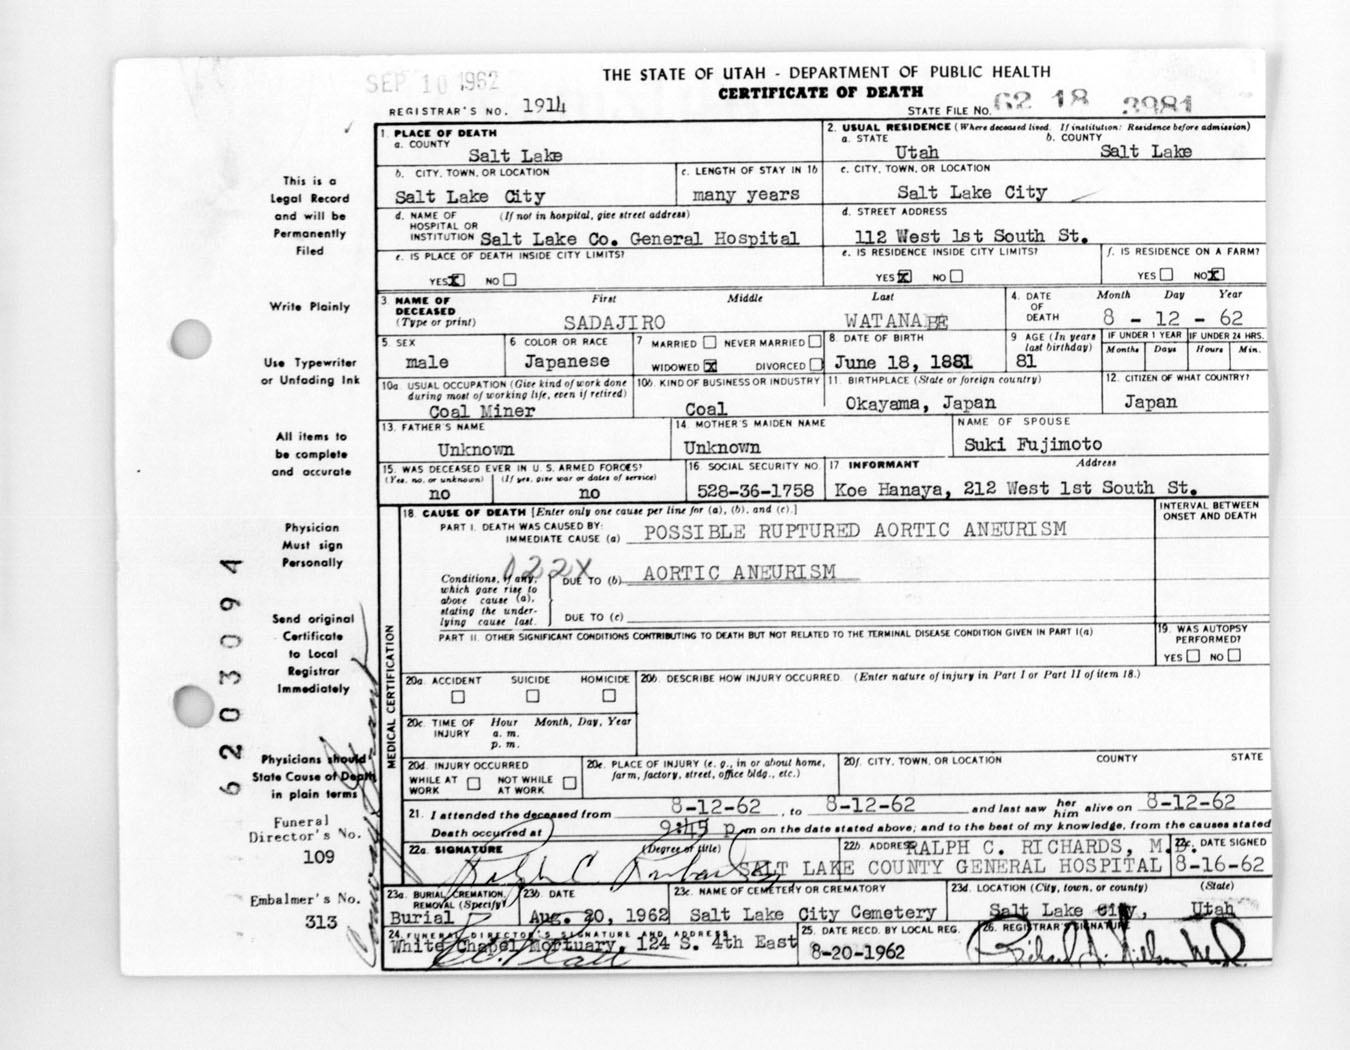 SEP 10 1962
THE STATE OF UTAH - DEPARTMENT OF PUBLIC HEALTH
CERTIFICATE OF DEATH
REGISTRAR'S NO. 1914
STATE FILE NO. 62 18 3981
This is a
Legal Record
and will be
Permanently
Filed
Write Plainly
Use Typewriter
or Unfading Ink
All items to
be complete
and accurate
Physician
Must sign
Personally
Send original
Certificate
to Local
Registrar
Immediately
Physicians should
State Cause of Death
in plain terms
Funeral
Director's No.
109
Embalmer's No.
313
6203094
1. PLACE OF DEATH
a. COUNTY
Salt Lake
2. USUAL RESIDENCE (Where deceased lived. If institution: Residence before admission)
a. STATE b. COUNTY
Utah Salt Lake
b. CITY, TOWN, OR LOCATION
Salt Lake City
c. LENGTH OF STAY IN 1b
many years
c. CITY, TOWN, OR LOCATION
Salt Lake City
d. NAME OF (If not in hospital, give street address)
HOSPITAL OR
INSTITUTION Salt Lake Co. General Hospital
d. STREET ADDRESS
112 West 1st South St.
e. IS PLACE OF DEATH INSIDE CITY LIMITS?
YES X NO
e. IS RESIDENCE INSIDE CITY LIMITS?
YES X NO
f. IS RESIDENCE ON A FARM?
YES NO X
3. NAME OF
DECEASED
(Type or print)
First Middle Last
SADAJIRO WATANABE
4. DATE
OF
DEATH
Month Day Year
8 - 12 - 62
5. SEX
male
6 COLOR OR RACE
Japanese
7 MARRIED NEVER MARRIED
WIDOWED X DIVORCED
8. DATE OF BIRTH
June 18, 1881
9 AGE (In years
last birthday)
81
IF UNDER 1 YEAR IF UNDER 24 HRS.
Months Days Hours Min.
10a. USUAL OCCUPATION (Give kind of work done
during most of working life, even if retired)
Coal Miner
10b. KIND OF BUSINESS OR INDUSTRY
Coal
11. BIRTHPLACE (State or foreign country)
Okayama, Japan
12. CITIZEN OF WHAT COUNTRY?
Japan
13. FATHER'S NAME
Unknown
14. MOTHER'S MAIDEN NAME
Unknown
NAME OF SPOUSE
Suki Fujimoto
15. WAS DECEASED EVER IN U.S. ARMED FORCES?
(Yes, no, or unknown) (If yes, give war or dates of service)
no no
16. SOCIAL SECURITY NO.
528-36-1758
17. INFORMANT Address
Koe Hanaya, 212 West 1st South St.
MEDICAL CERTIFICATION
18. CAUSE OF DEATH [Enter only one cause per line for (a), (b), and (c).]
INTERVAL BETWEEN
ONSET AND DEATH
PART I. DEATH WAS CAUSED BY:
IMMEDIATE CAUSE (a) POSSIBLE RUPTURED AORTIC ANEURISM
022X
Conditions, if any,
which gave rise to
above cause (a),
stating the under-
lying cause last.
DUE TO (b) AORTIC ANEURISM
DUE TO (c)
PART II. OTHER SIGNIFICANT CONDITIONS CONTRIBUTING TO DEATH BUT NOT RELATED TO THE TERMINAL DISEASE CONDITION GIVEN IN PART I(a)
19. WAS AUTOPSY
PERFORMED?
YES NO
20a. ACCIDENT SUICIDE HOMICIDE
20b. DESCRIBE HOW INJURY OCCURRED. (Enter nature of injury in Part I or Part II of item 18.)
20c. TIME OF Hour Month, Day, Year
INJURY a. m.
p. m.
20d. INJURY OCCURRED
WHILE AT NOT WHILE
WORK AT WORK
20e. PLACE OF INJURY (e. g., in or about home,
farm, factory, street, office bldg., etc.)
20f. CITY, TOWN, OR LOCATION COUNTY STATE
21. I attended the deceased from 8-12-62, to 8-12-62 and last saw her him alive on 8-12-62
Death occurred at 9:45 p m on the date stated above; and to the best of my knowledge, from the causes stated
22a. SIGNATURE (Degree or title)
Ralph C Richards
22b ADDRESS RALPH C. RICHARDS, M.D.
SALT LAKE COUNTY GENERAL HOSPITAL
22c. DATE SIGNED
8-16-62
23a. BURIAL, CREMATION,
REMOVAL (Specify)
Burial
23b. DATE
Aug. 20, 1962
23c. NAME OF CEMETERY OR CREMATORY
Salt Lake City Cemetery
23d. LOCATION (City, town, or county) (State)
Salt Lake City, Utah
24. FUNERAL DIRECTOR'S SIGNATURE AND ADDRESS
White Chapel Mortuary, 124 S. 4th East
25. DATE RECD. BY LOCAL REG.
8-20-1962
26. REGISTRAR'S SIGNATURE